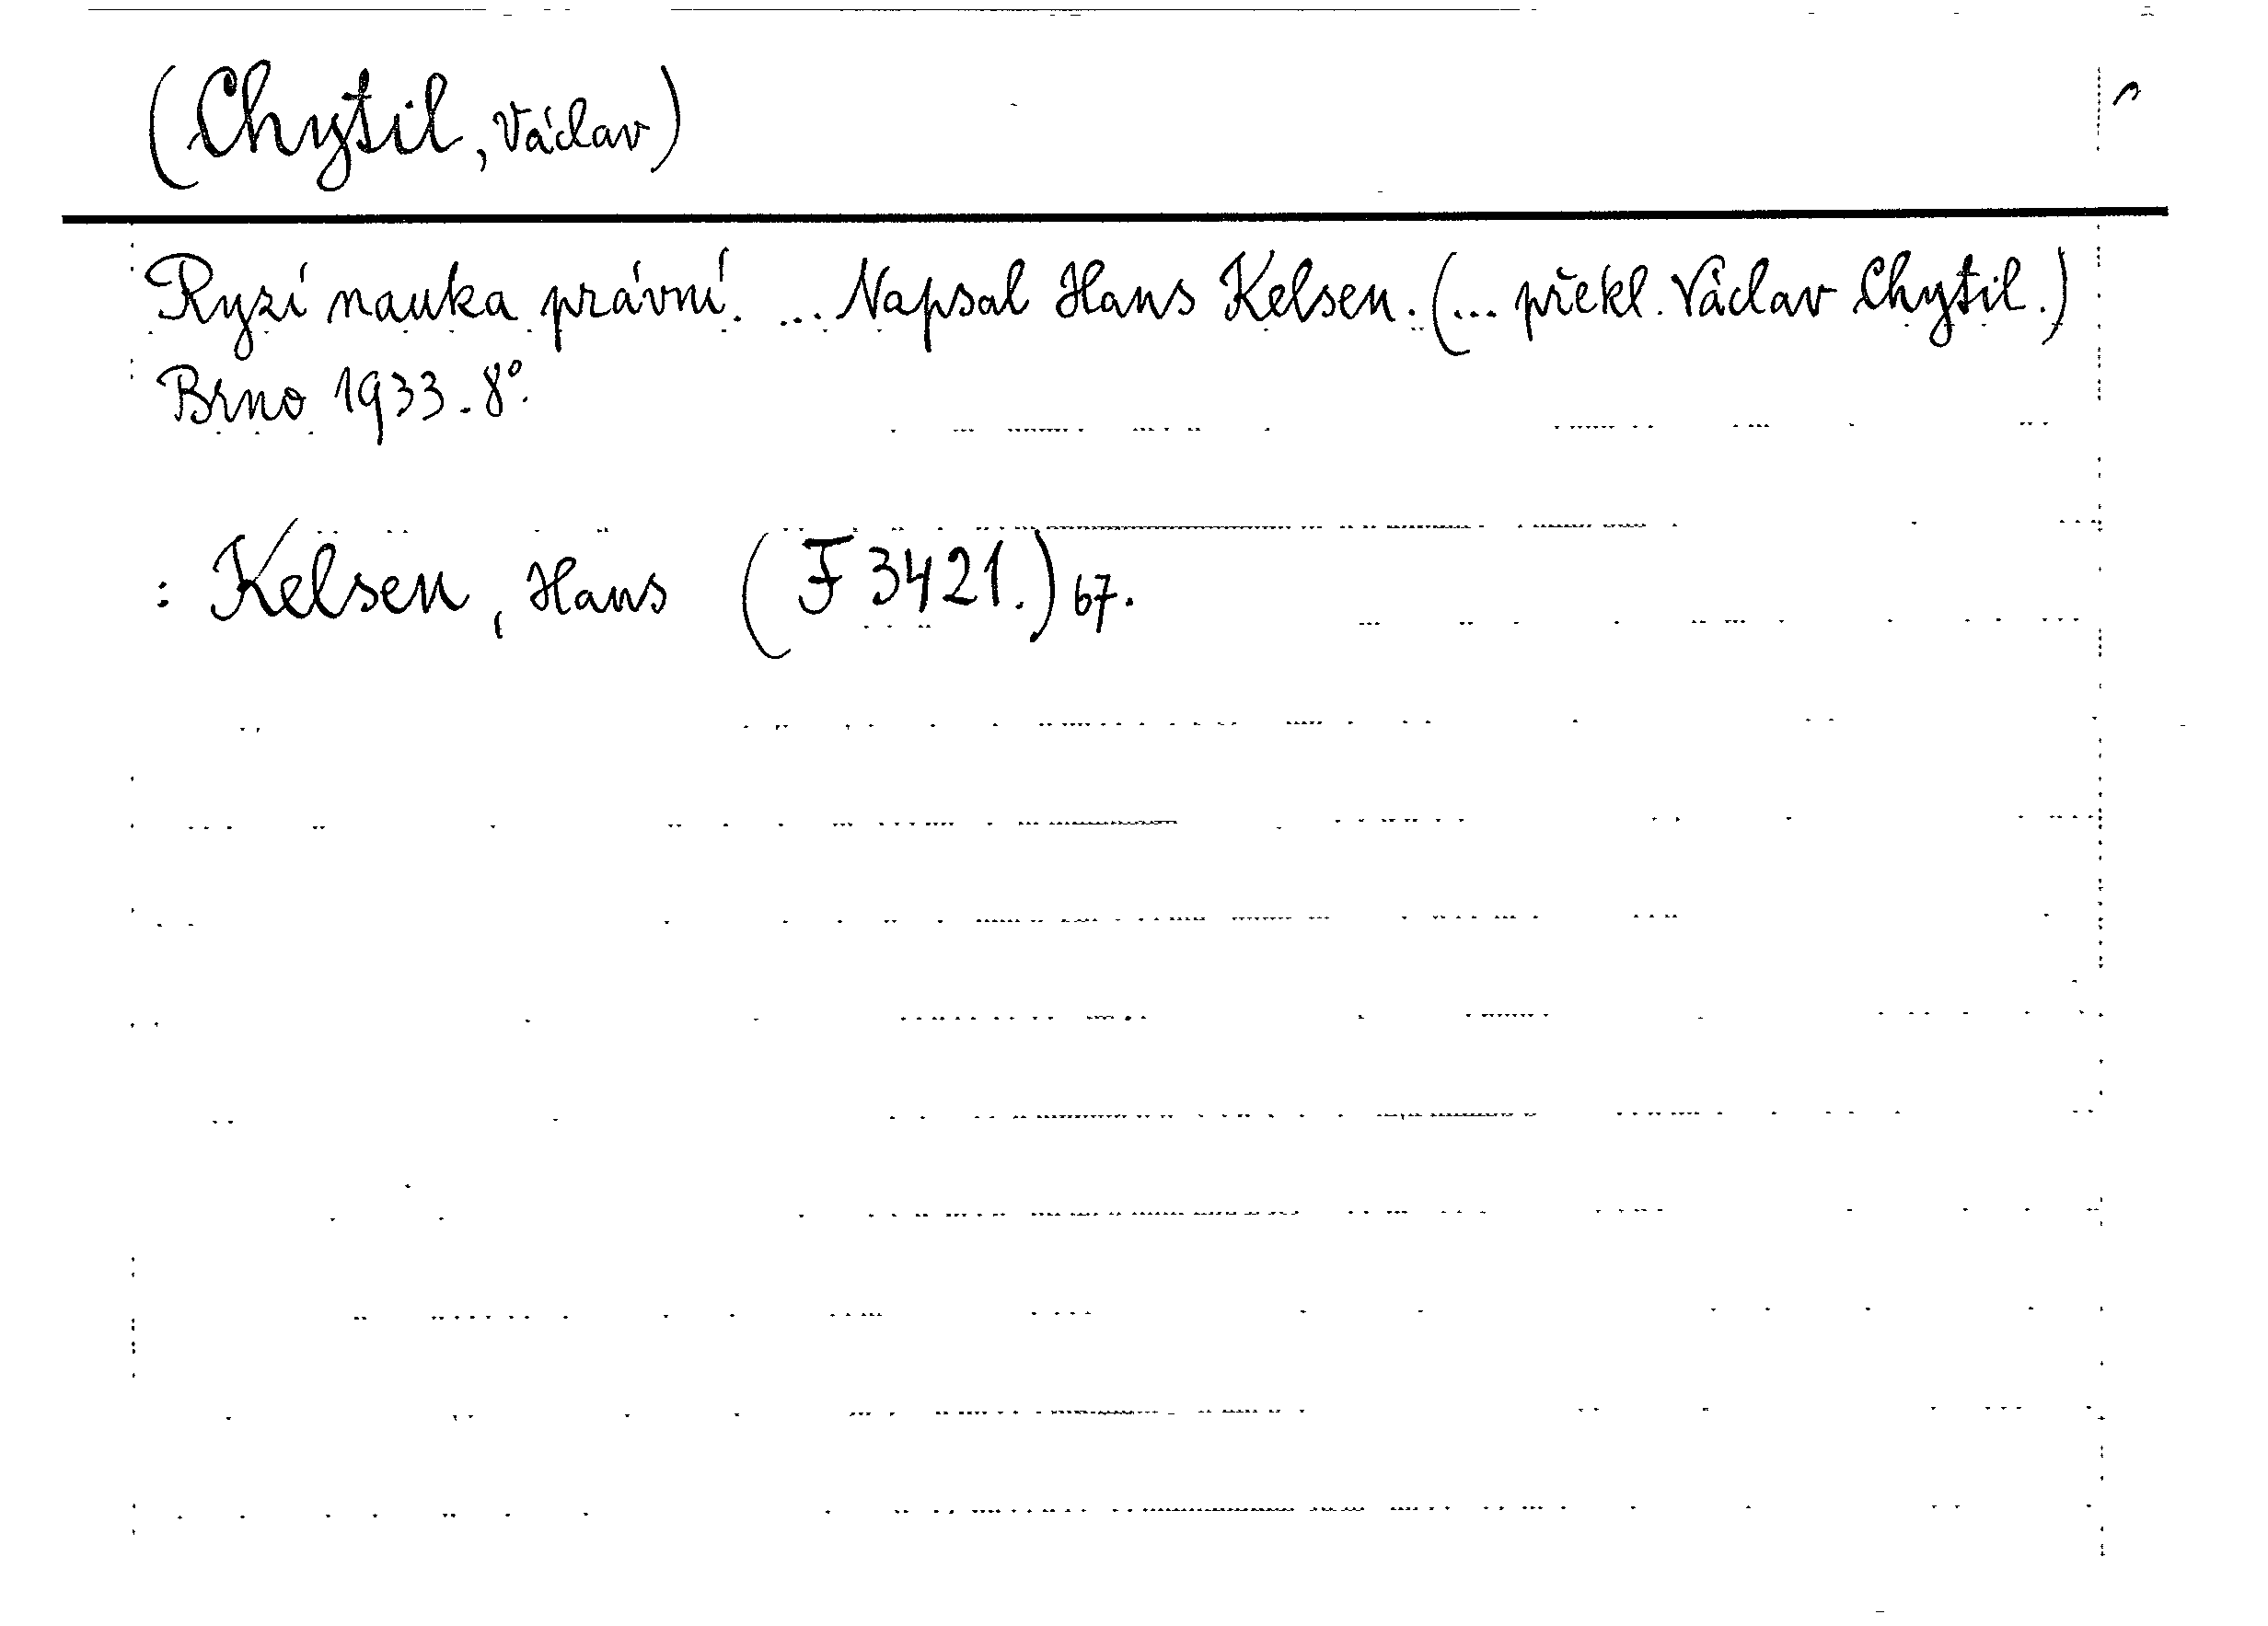 (Chytil, Václav)
Ryzí nauka právní. ... Napsal Hans Kelsen. (... překl. Václav Chytil.)
Brno 1933. 8°.
: Kelsen, Hans (F 3421.) 67.